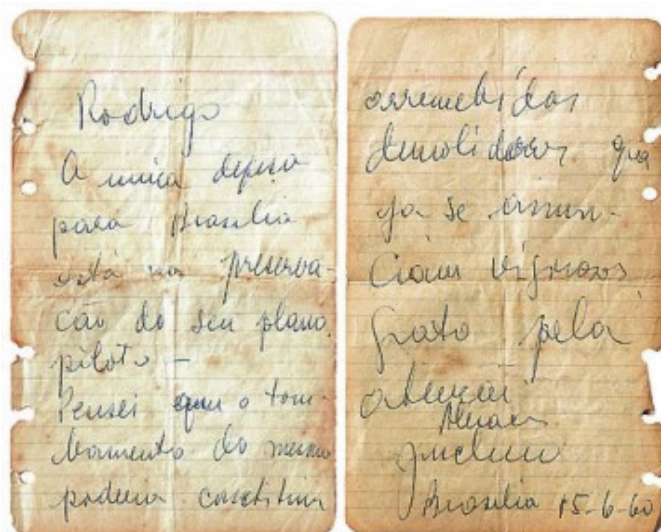 Rodrigo
A unica defesa
para Brasilia
está na preserva-
cão do seu plano
piloto –
Pensei que o tom-
bamento do mesmo
poderia constituir
arremetidas
demolidoras que
ja se anun-
ciam vigorosas
Grato pela
atenção
Juscelino
Brasilia 15-6-60